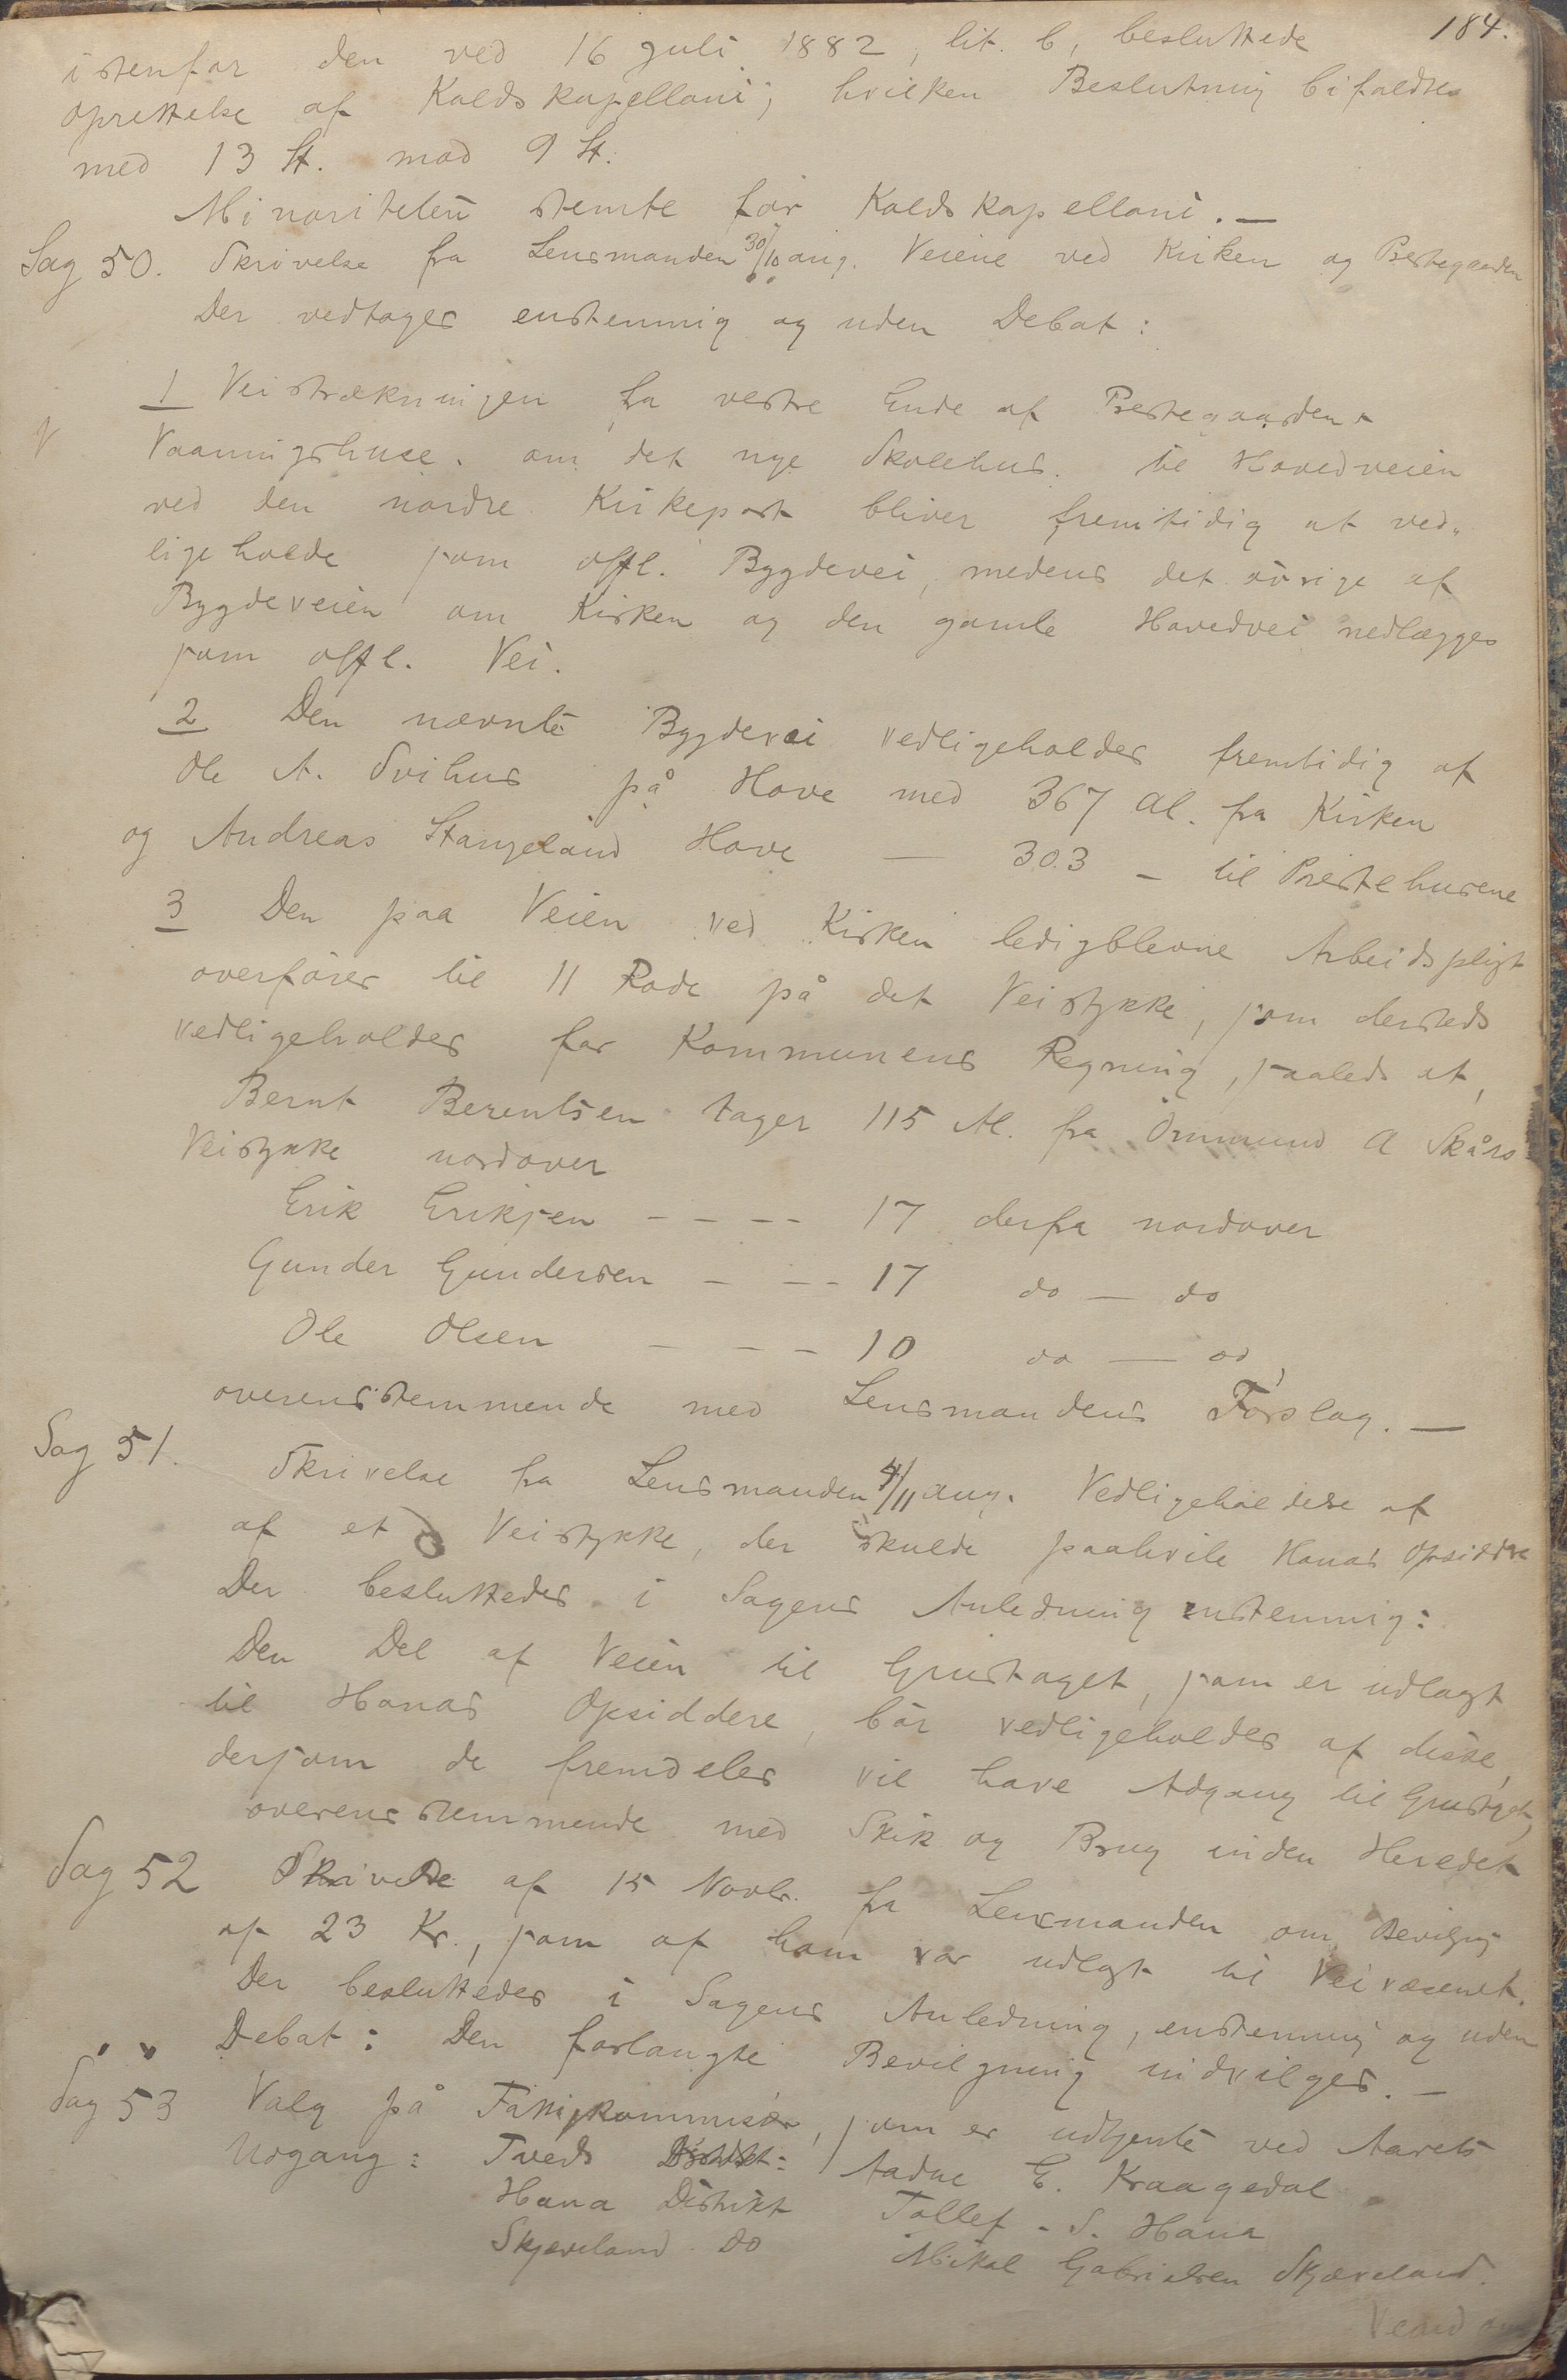 184.
istenfor den ved 16 Juli 1882, lit. b, besluttede
oprettelse af Kaldskapellani; hvilken Beslutning bifaldtes
med 13 St. mod 9 St.
Minoriteten stemte for Kaldskapellani. —
Sag 50. Skrivelse fra Lensmanden 30/10 ang. Veiene ved Kirken og Prestegaarden
Der vedtages enstemmig og uden Debat:
1 Veistrækningen fra vestre Ende af Prestegaardens
Vaaningshuse om det nye Skolehus til Hovedveien
ved den nordre Kirkeport bliver fremtidig at ved-
ligeholde som offl. Bygdevei, medens det øvrige af
Bygdeveien om Kirken og den gamle Hovedvei nedlægges
som offl. Vei.
2 Den nævnte Bygdevei vedligeholdes fremtidig af
Ole A. Svihus på Hove med 367 Al. fra Kirken
og Andreas Stangeland Hove — 303 — til Prestehusene
3 Den paa Veien ved Kirken ledigblevne Arbeidspligt
overføres til 11 Rode på det Veistykke, som dersteds
vedligeholdes for Kommunens Regning, saaleds at,
Bernt Berentsen tager 115 Al. fra Ommund A Skårs
Veistykke nordover
Erik Eriksen - - - - 17 derfra nordover
Gunder Gundersen - - - 17 do — do
Ole Olsen - - - 10 do — do,
overensstemmende med Lensmandens Forslag. —
Sag 51. Skrivelse fra Lensmanden 4/11 ang. Vedligeholdelse af
af et Veistykke, der skulde paahvile Hanas Opsiddere
Der besluttedes i Sagens Anledning enstemmig:
Den Del af Veien til Grustaget, som er udlagt
til Hanas Opsiddere, bør vedligeholdes af disse,
dersom de fremdeles vil have Adgang til Grustaget,
overensstemmende med Skik og Brug inden Heredet
Sag 52 Skrivelse af 15 Novbr. fra Lensmanden om Bevilgn.
af 23 Kr., som af ham var udlagt til Veivæsenet.
Der besluttedes i Sagens Anledning, enstemmig og uden
Debat: Den forlangte Bevilgning indvilges. —
Sag 53 Valg på Fattigkommisær, som er udtjente ved Aarets
Udgang: Tveds Distrikt: Aadne E. Kraagedal
Hana Distrikt Tollef S. Hana
Skjæveland do Mikal Gabrielsen Skjæveland.
Vend om